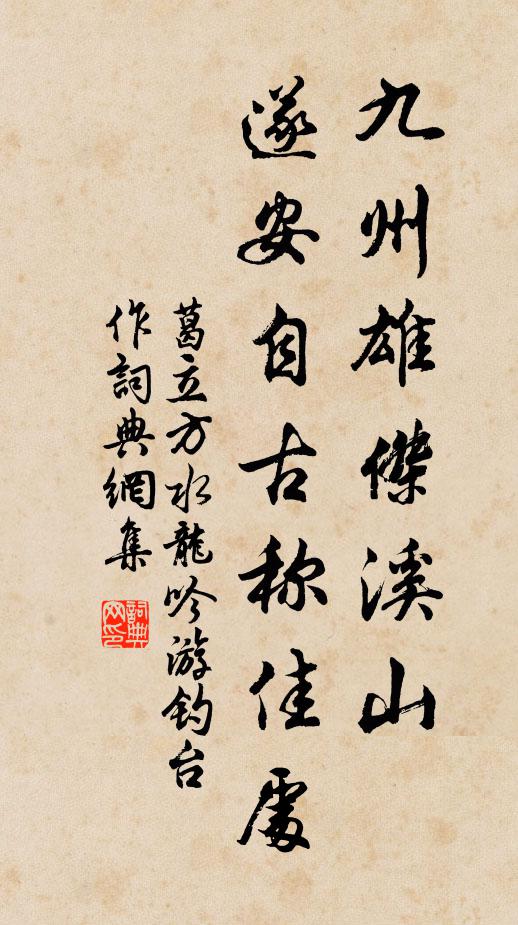 九州雄傑溪山
遂安自古称佳處
葛立方水龍吟游钓台
作詞典網集
詞典网印